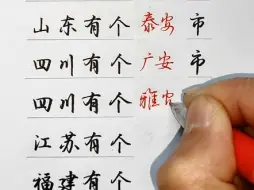 山东有个泰安市
四川有个广安市
四川有个雅安
江苏有个
福建有个